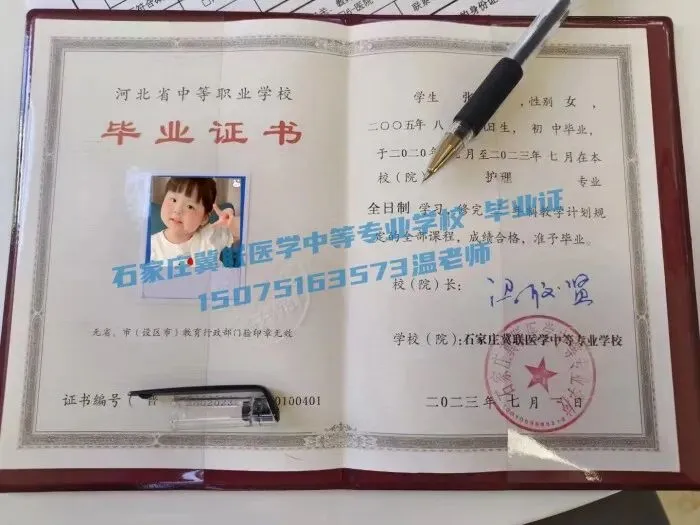 河北省中等职业学校
毕业证书
无省、市（设区市）教育行政部门验印章无效
证书编号
100401
学生 张 ，性别 女 ，
二〇〇五年 八 日生，初中毕业，
于二〇二〇年 月至二〇二三年 七 月在本
校（院） 护理 专业
全日制 学习，修完 教学计划规
定的全部课程，成绩合格，准予毕业。
校（院）长：
学校（院）：石家庄冀联医学中等专业学校
二〇二三年 七 月 日
石家庄冀联医学中等专业学校
石家庄冀联医学中等专业学校 毕业证
15075163573温老师